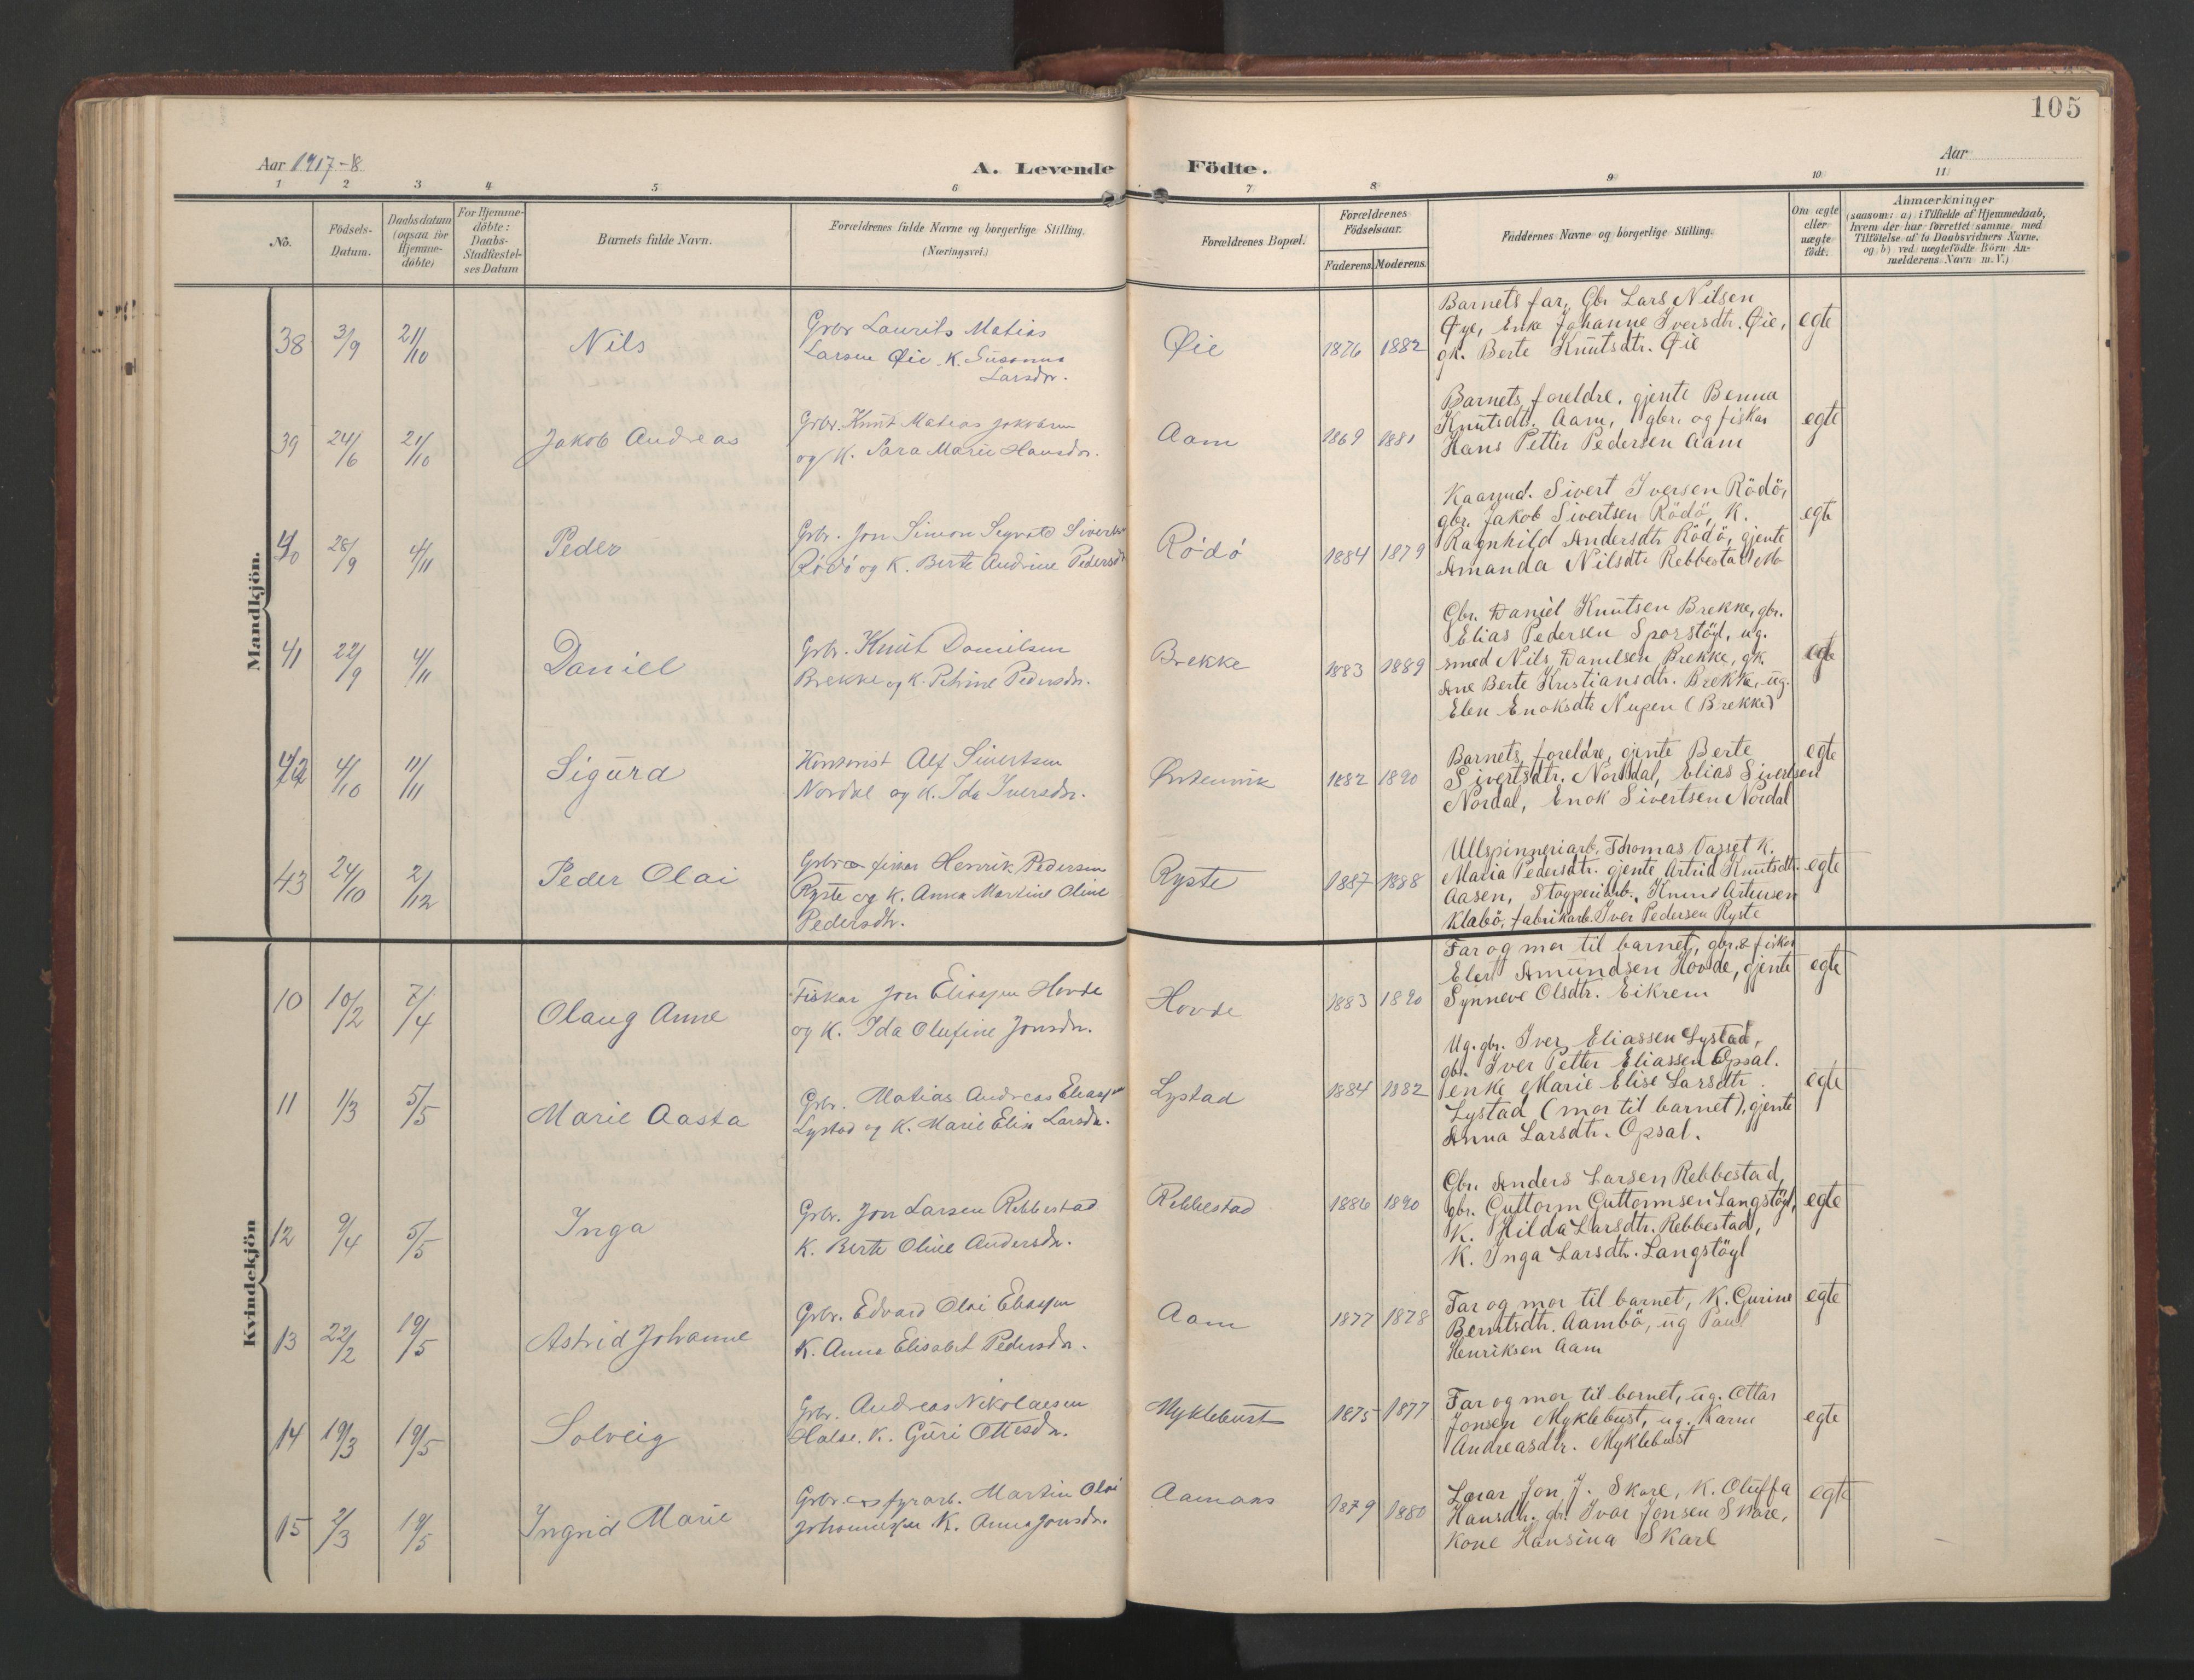 105
Aar 1917-8
A. Levende Födte.
Aar
1 2 3 4 5 6 7 8 9 10 11
No.
Födsels-
Datum.
Daabsdatum
(ogsaa for
Hjemme-
döbte)
For Hjemme-
döbte:
Daabs-
Stadfæstel-
ses Datum
Barnets fulde Navn.
Forældrenes fulde Navne og borgerlige Stilling.
(Næringsvei.)
Forældrenes Bopæl.
Forældrenes
Födselsaar.
Faderens. Moderens.
Faddernes Navne og borgerlige Stilling.
Om ægte
eller
uægte
födt.
Anmærkninger
(saasom: a) i Tilfælde af Hjemmedaab,
hvem der har forrettet samme med
Tilföielse af to Daabsvidners Navne,
og b) ved uægtefödte Börn An-
melderens Navn m. V.)
Mandkjön.
38 3/9 21/10 Nils
Grbr Laurits Matias
Larsen Øie. K. Susanna
Larsdtr.
Øie 1876 1882
Barnets far, Gbr Lars Nilsen
Øye, Enke Johanne Iversdtr. Øie,
gk. Berte Knutsdtr. Øie
egte
39 24/6 21/10 Jakob Andreas
Grbr. Knut Matias Jakobsen
og K. Sara Marie Hansdtr.
Aam 1869 1881
Barnets foreldre, gjente Benna
Knutsdtr. Aam, gbr. og fiskar
Hans Petter Pedersen Aam
egte
40 28/9 4/11 Peder
Grbr. Jon Simon Sigvald Sivertsen
Rödö og K. Berte Andrine Pedersdtr
Rödö 1884 1879
Kaarmd. Sivert Iversen Rödö,
gbr. Jakob Sivertsen Rödö, K.
Ragnhild Andersdtr Rödö, gjente
Amanda Nilsdtr Rebbestad Mo
egte
41 22/9 4/11 Daniel
Grbr. Knut Danielsen
Brekke og K. Petrine Pedersdtr.
Brekke 1883 1889
Gbr. Daniel Knutsen Brekke, gbr.
Elias Pedersen Sporstöyl, ug.
smed Nils Danilsen Brekke, gk.
Ane Berte Kristiansdtr. Brekke, ug.
Elen Enoksdtr Nupen (Brekke)
egte
42 4/10 11/11 Sigurd
Kontorist Alf Sivertsen
Nordal og K. Ida Iversdtr.
1882 1890
Barnets foreldre, gjente Berte
Sivertsdtr. Nordal, Elias Sivertsen
Nordal, Enok Sivertsen Nordal
egte
43 24/10 2/12 Peder Olai
Grbr og fiskar Henrik Pedersen
Ryste og K. Anna Martine Oline
Pedersdtr.
Ryste 1887 1888
Ullspinneriarb. Thomas Vasset K.
Maria Pedersdtr. gjente Astrid Knutsdtr.
Aasen, Stoyperiarb. Knut Artursen
Klabö, fabrikarb. Iver Pedersen Ryste
egte
Kvindekjön
10 10/2 7/4 Olaug Anne
Fiskar Jon Eliassen Hovde
og K. Ida Olufine Jonsdtr.
Hovde 1883 1890
Far og mor til barnet, gbr. & fiskar
Elert Amundsen Hovde, gjente
Synneve Olsdtr. Eikrem
egte
11 1/3 5/5 Marie Aasta
Grbr. Matias Andreas Eliassen
Lystad og K. Marie Elise Larsdtr.
Lystad 1884 1882
Ug. gbr. Iver Eliassen Lystad,
gbr. Iver Petter Eliassen Opsal.
enke Marie Elise Larsdtr.
Lystad (mor til barnet), gjente
Anna Larsdtr. Opsal.
egte
12 9/4 5/5 Inga
Grbr. Jon Larsen Rebbestad
K. Berte Oline Andersdtr.
Rebbestad 1886 1890
Gbr. Anders Larsen Rebbestad,
gbr. Guttorm Guttormsen Langstöyl,
K. Hilda Larsdtr. Rebbestad,
K. Inga Larsdtr. Langstöyl
egte
13 22/2 19/5 Astrid Johanne
Grbr. Edvard Olai Eliassen
K. Anna Elisabet Pedersdtr.
Aam 1877 1878
Far og mor til barnet, K. Gurine
Berntsdtr. Aambö, ug Paul
Henriksen Aam
egte
14 19/3 19/5 Solveig
Grbr. Andreas Nikolaisen
Halse. K. Guri Ottesdtr.
Myklebust 1875 1877
Far og mor til barnet, ug. Ottar
Jonsen Myklebust, ug. Karen
Andreasdtr. Myklebust
egte
15 2/3 19/5 Ingrid Marie
Grbr. og fyrarb. Martin Olai
Johannessen K. Anna Jonsdtr.
Aamaas 1879 1880
Lærar Jon J. Skare, K. Oluffa
Hansdtr. gbr. Ivar Jonsen Skare,
Kone Hansina Skare
egte